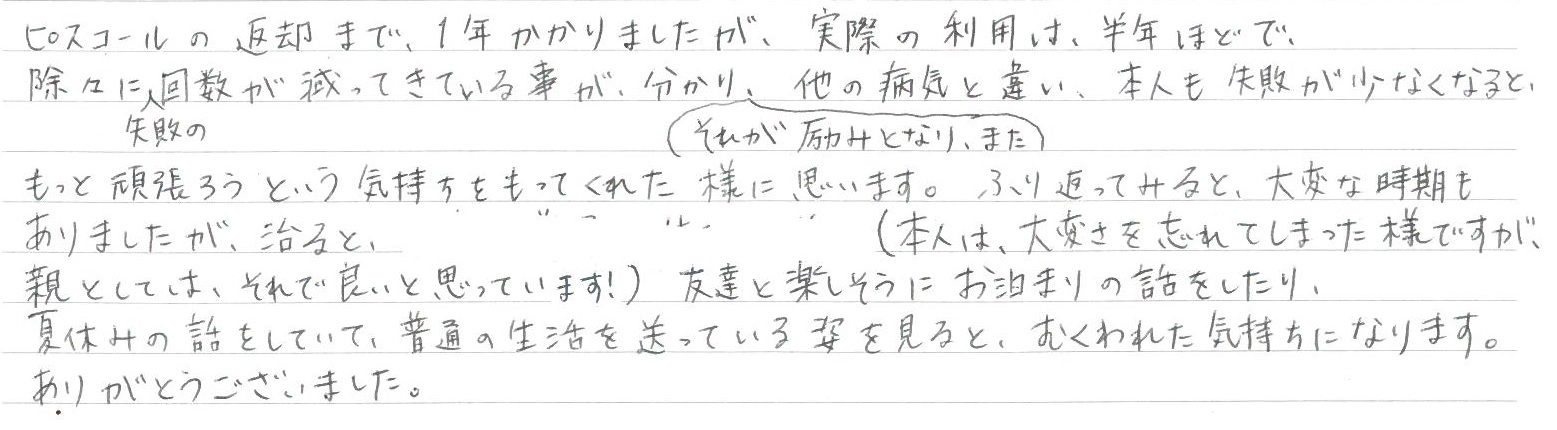 ピスコールの返却まで、1年かかりましたが、実際の利用は、半年ほどで、
除々に回数が減ってきている事が、分かり、他の病気と違い、本人も失敗が少なくなると、
失敗の
それが励みとなり、また
もっと頑張ろうという気持ちをもってくれた様に思います。ふり返ってみると、大変な時期も
ありましたが、治ると、
(本人は、大変さを忘れてしまった様ですが、
親としては、それで良いと思っています!) 友達と楽しそうにお泊まりの話をしたり、
夏休みの話をしていて、普通の生活を送っている姿を見ると、むくわれた気持ちになります。
ありがとうございました。